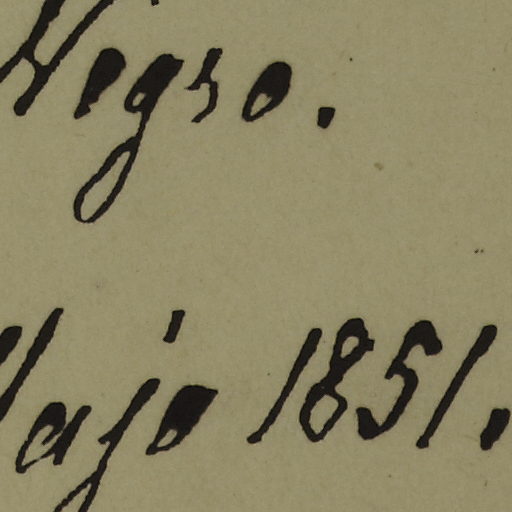 Negro.
Majo 1851.